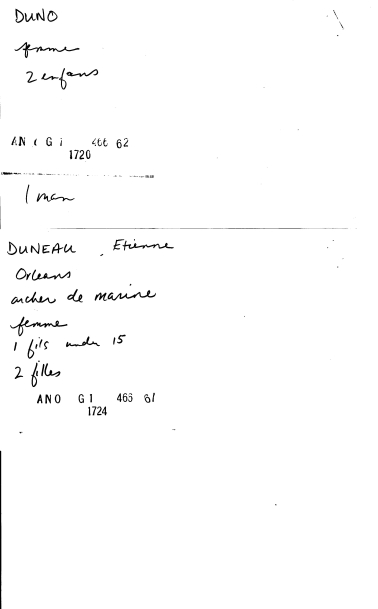 DUNO
femme
2 enfans
AN G 1 466 62
1720
1 man
DUNEAU, Etienne
Orleans
archer de marine
femme
1 fils under 15
2 filles
ANO G1 465 61
1724